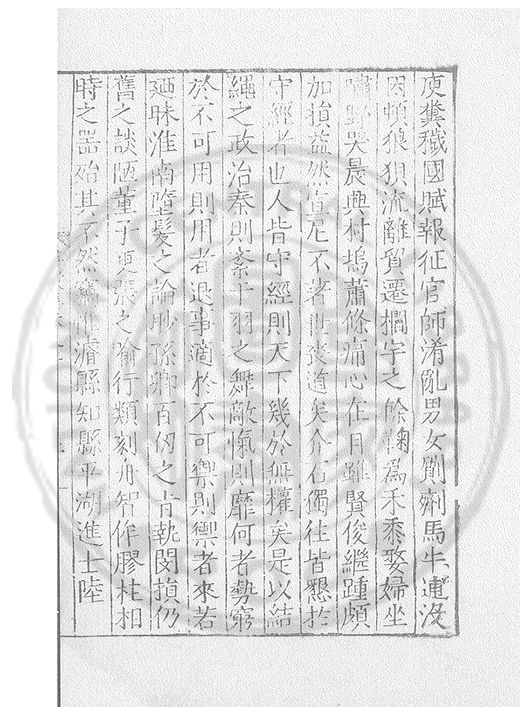 庾糞穢國賦報征官師淆亂男女劓劓馬牛逋沒
困頓狼狽流離貿遷櫚宇之餘鞠爲禾黍嫠婦坐
嘯野哭晨興村塢蕭條痛心在目雖賢俊繼踵頗
加損益然不著世喪道矣介石獨往皆懇於
守經者也人皆守經則天下幾於無權矣是以結
繩之政治秦則紊干羽之舞敵愾則靡何者勢窮
於不可用則用者退事適於不可禦則禦者來若
廼昧淮南墮髮之論眇孫卿百仞之肯執閔損仍
舊之談陋董子更張之喻行類刻舟智作膠柱相
時之器殆其不然竊惟濬縣知縣平湖進士陸